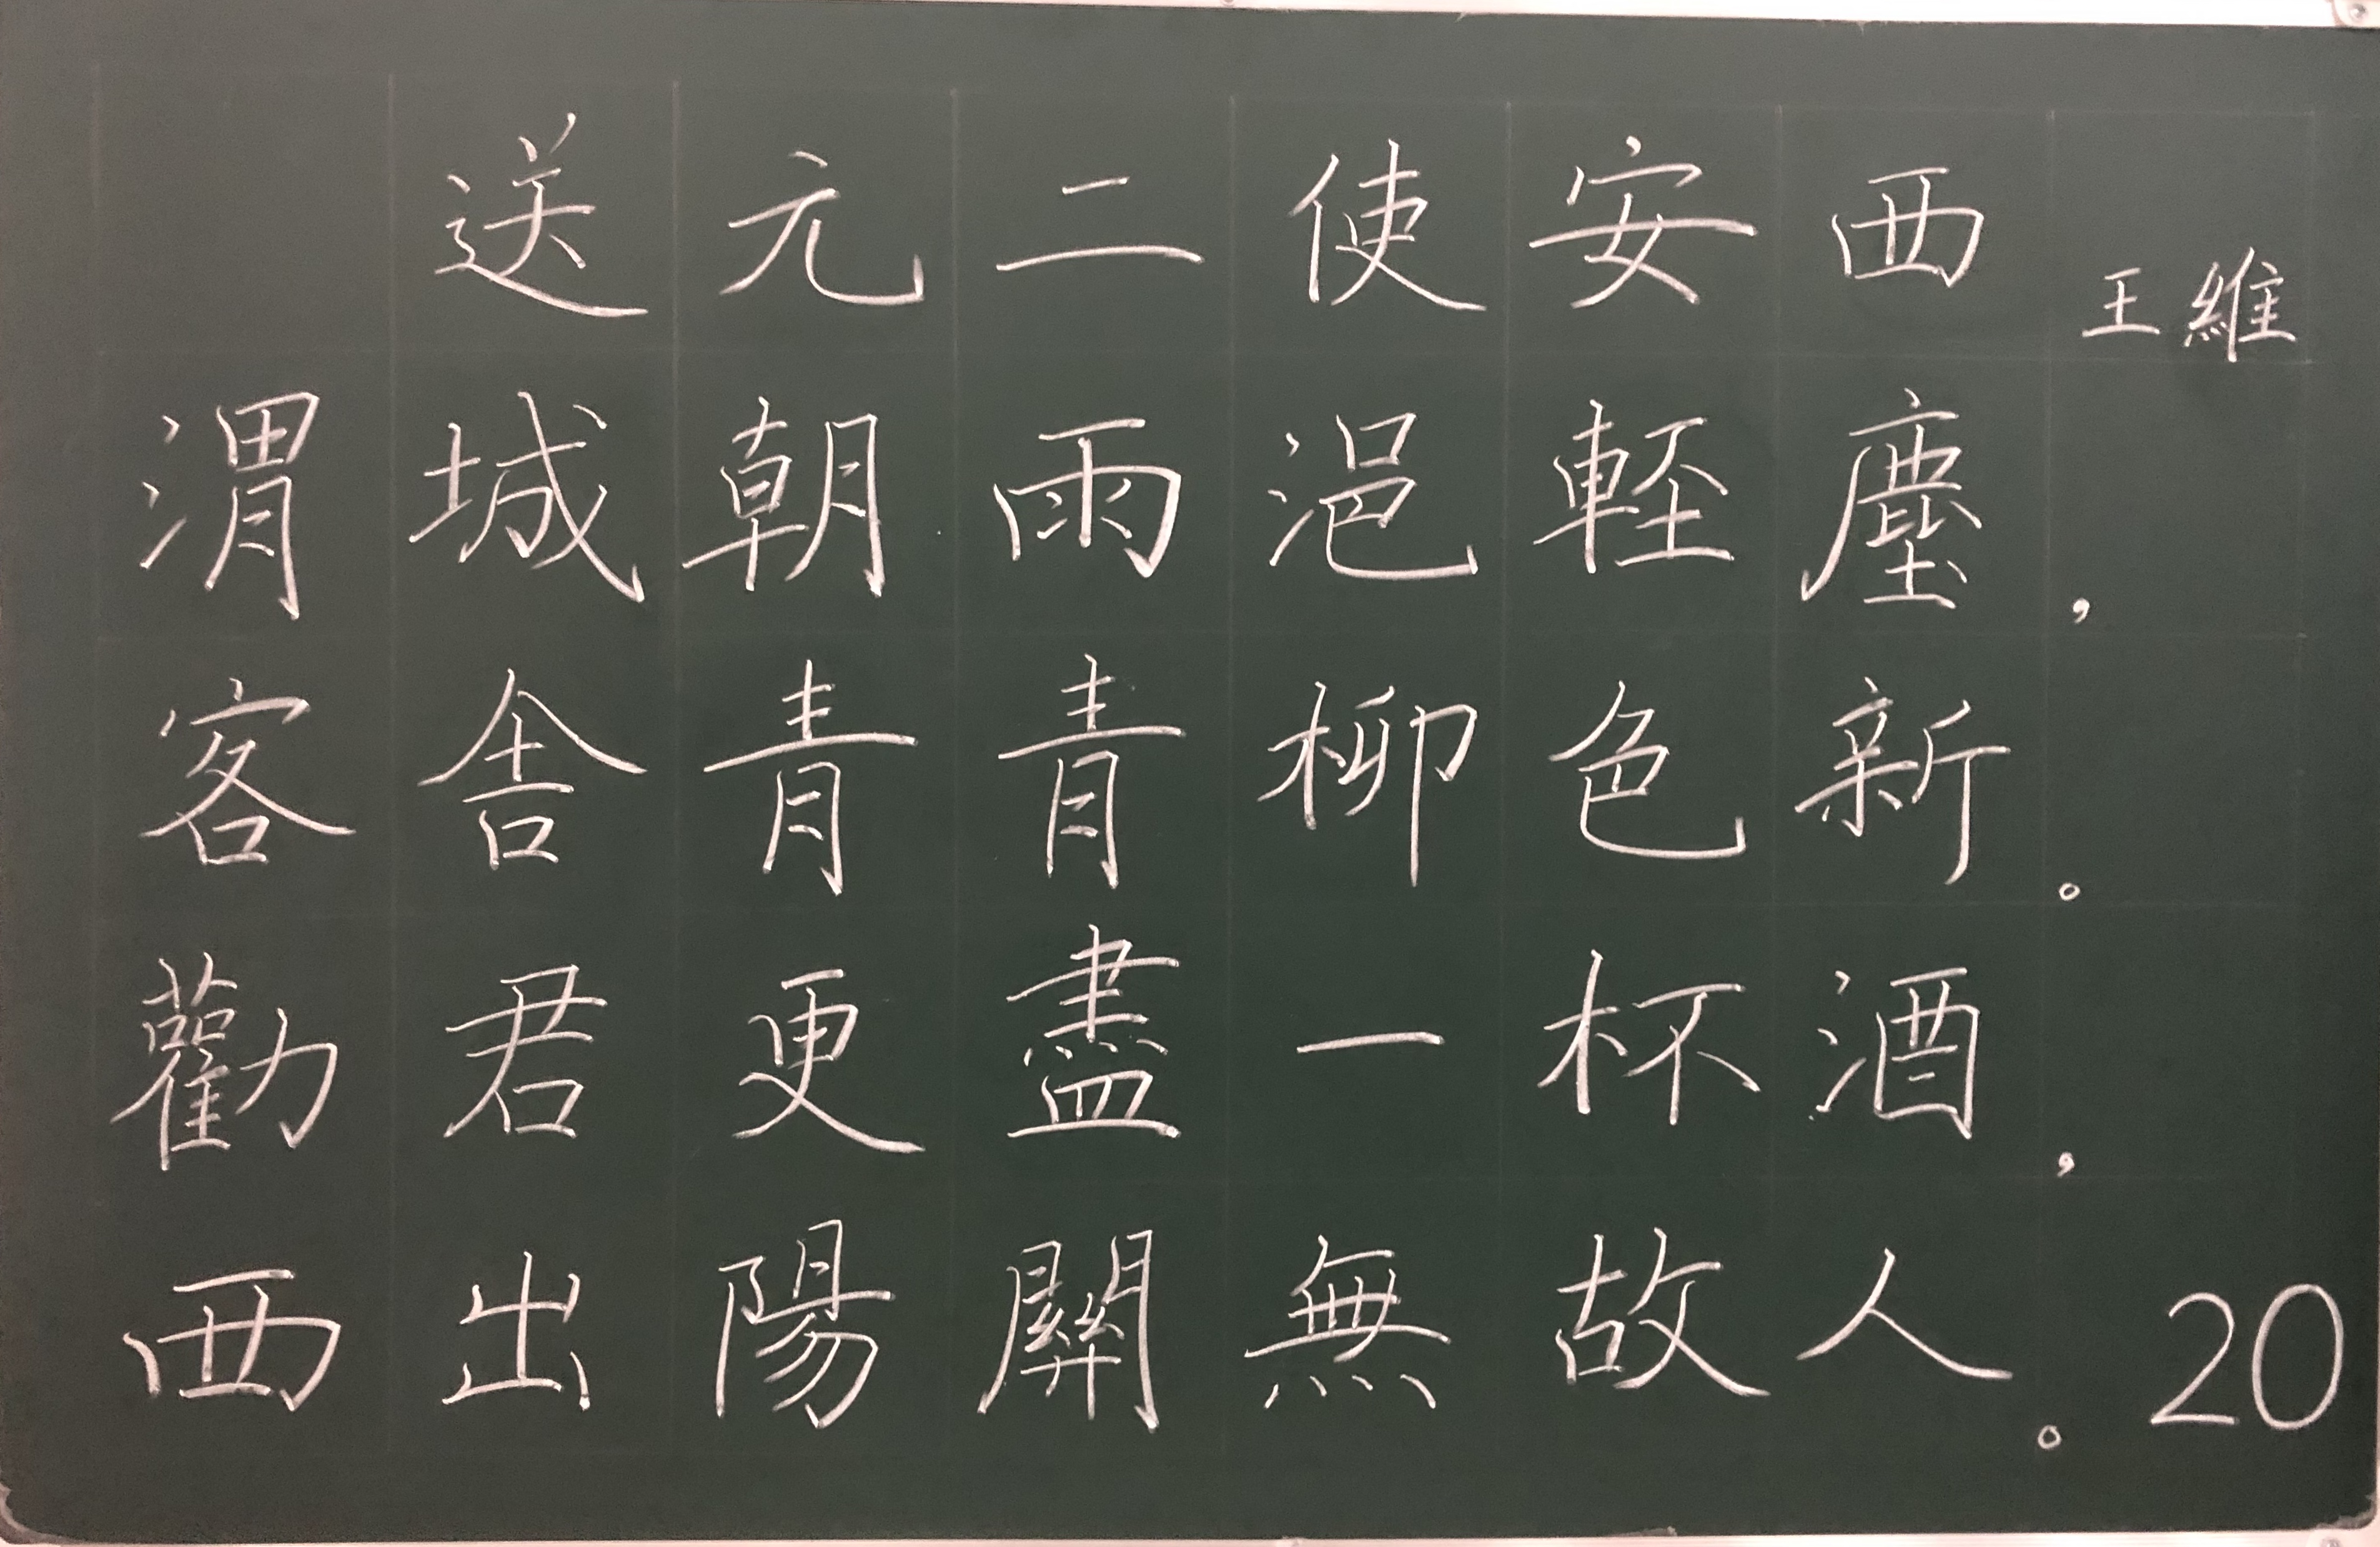 送元二使安西 王維
渭城朝雨浥軽塵，
客舎青青柳色新。
勸君更盡一杯酒，
西出陽關無故人。 20